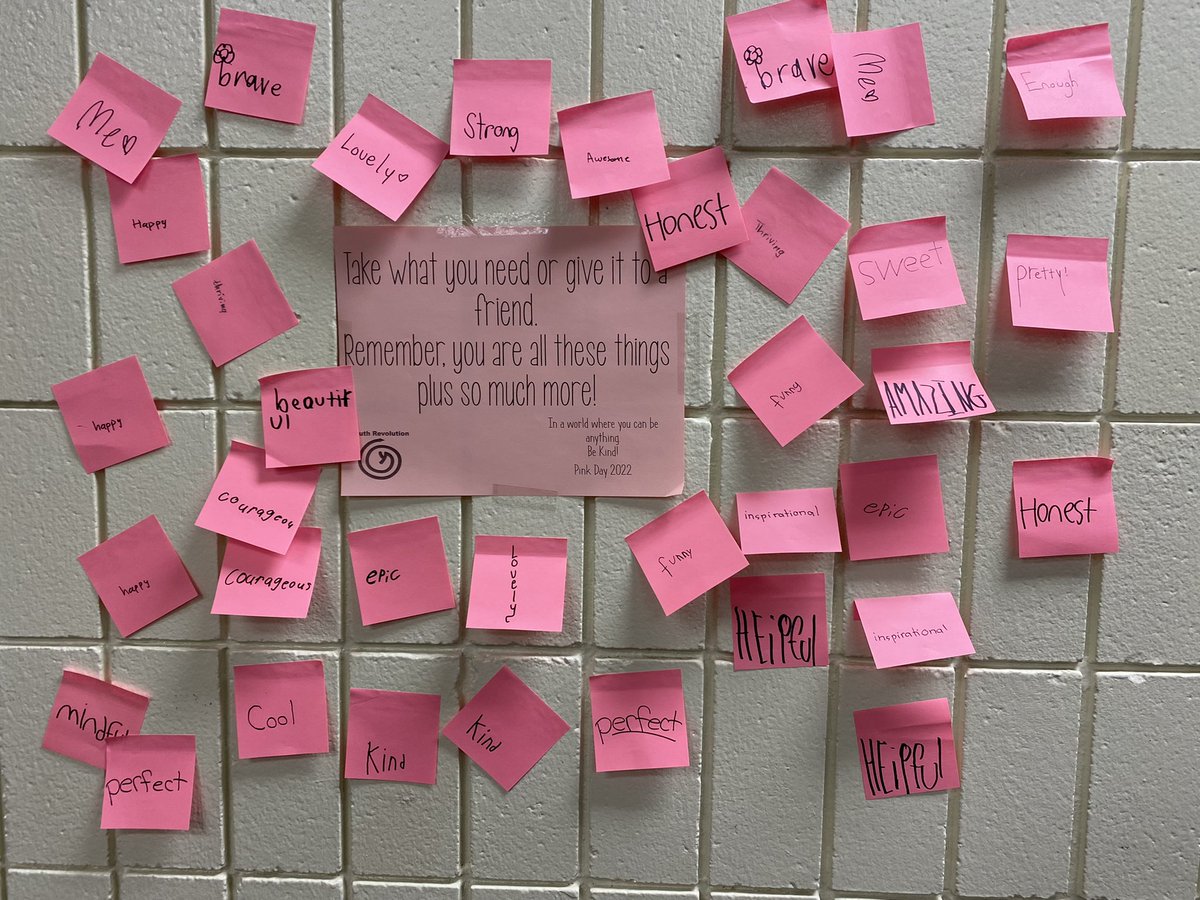 brave
Me
Lovely
Strong
Awesome
brave
Me
Enough
Happy
Honest
Thriving
sweet
pretty!
thriving
Take what you need or give it to a
friend.
Remember, you are all these things
plus so much more!
uth Revolution
In a world where you can be
anything
Be Kind!
Pink Day 2022
happy
beautif
ul
funny
AMAZING
courageou
courageous
happy
epic
Lovely
funny
inspirational
epic
Honest
HElpful
inspirational
mindful
perfect
Cool
Kind
Kind
perfect
HElpful